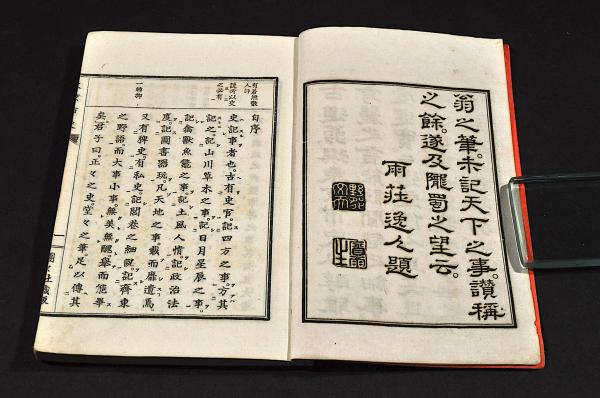 翁之筆。未記天下之事。讃稱
之餘。遂及隴蜀之望云。
雨荘逸人題
自序
史記事者也。古有史官。記四方之事。方其
記之。記山川草木之事。記日月星辰之事。
記禽獸魚鼈之事。記土風人情記政治法
度。記圖書器玩。凡天地之事。載而靡遺焉。
又有稗史。有私史。記閭巷之細。記齊東
之野語。而大事小事。無美無醜。擧而能
矣。君子曰。正々之史。堂々之筆。足以傳其